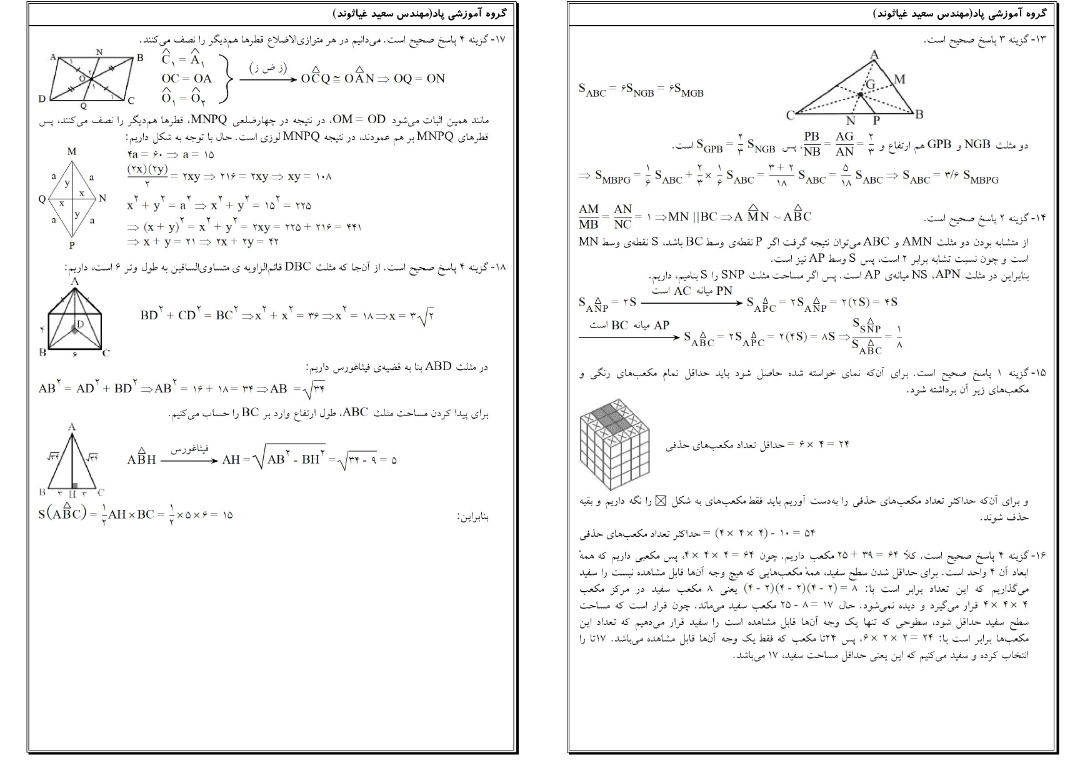 گروه آموزشی پاد(مهندس سعید غیاثوند)
۱۳- گزینه ۳ پاسخ صحیح است.
A
M
G
C
N
P
B
S_ABC = ۶S_NGB = ۶S_MGB
دو مثلث NGB و GPB هم ارتفاع و PB/NB = AG/AN = ۲/۳، پس S_GPB = ۲/۳ S_NGB است.
⇒ S_MBPG = ۱/۶ S_ABC + ۲/۳ × ۱/۶ S_ABC = (۳+۲)/۱۸ S_ABC = ۵/۱۸ S_ABC ⇒ S_ABC = ۳/۶ S_MBPG
۱۴- گزینه ۲ پاسخ صحیح است. AM/MB = AN/NC = ۱ ⇒ MN || BC ⇒ A M̂ N ~ A B̂ C
از متشابه بودن دو مثلث AMN و ABC می‌توان نتیجه گرفت اگر P نقطه‌ی وسط BC باشد، S نقطه‌ی وسط MN
است و چون نسبت تشابه برابر ۲ است، پس S وسط AP نیز است.
بنابراین در مثلث APN، NS میانه‌ی AP است. پس اگر مساحت مثلث SNP را S بنامیم، داریم.
S_ANP = ۲S PN میانه AC است → S_APC = ۲S_ANP = ۲(۲S) = ۴S
AP میانه BC است → S_ABC = ۲S_APC = ۲(۴S) = ۸S ⇒ S_SNP/S_ABC = ۱/۸
۱۵- گزینه ۱ پاسخ صحیح است. برای آن‌که نمای خواسته شده حاصل شود باید حداقل تمام مکعب‌های رنگی و
مکعب‌های زیر آن برداشته شود.
حداقل تعداد مکعب‌های حذفی = ۶ × ۴ = ۲۴
و برای آن‌که حداکثر تعداد مکعب‌های حذفی را به‌دست آوریم باید فقط مکعب‌های به شکل ☒ را نگه داریم و بقیه
حذف شوند.
حداکثر تعداد مکعب‌های حذفی = (۴ × ۴ × ۴) - ۱۰ = ۵۴
۱۶- گزینه ۴ پاسخ صحیح است. کلاً ۶۴ = ۳۹ + ۲۵ مکعب داریم. چون ۶۴ = ۴ × ۴ × ۴، پس مکعبی داریم که همهٔ
ابعاد آن ۴ واحد است. برای حداقل شدن سطح سفید، همهٔ مکعب‌هایی که هیچ وجه آن‌ها قابل مشاهده نیست را سفید
می‌گذاریم که این تعداد برابر است با: ۸ = (۴-۲)(۴-۲)(۴-۲) یعنی ۸ مکعب سفید در مرکز مکعب
۴ × ۴ × ۴ قرار می‌گیرد و دیده نمی‌شود. حال ۱۷ = ۸ - ۲۵ مکعب سفید می‌ماند. چون قرار است که مساحت
سطح سفید حداقل شود، سطوحی که تنها یک وجه آن‌ها قابل مشاهده است را سفید قرار می‌دهیم که تعداد این
مکعب‌ها برابر است با: ۲۴ = ۲ × ۲ × ۶، پس ۲۴تا مکعب که فقط یک وجه آن‌ها قابل مشاهده می‌باشد. ۱۷تا را
انتخاب کرده و سفید می‌کنیم که این یعنی حداقل مساحت سفید، ۱۷ می‌باشد.
گروه آموزشی پاد(مهندس سعید غیاثوند)
۱۷- گزینه ۴ پاسخ صحیح است. می‌دانیم در هر متوازی‌الاضلاع قطرها هم‌دیگر را نصف می‌کنند.
A N B
O
D Q C
Ĉ₁ = Â₁
OC = OA
Ô₁ = Ô₂
(ز ض ز) → OĈQ ≅ OÂN ⇒ OQ = ON
مانند همین اثبات می‌شود OM = OD، در نتیجه در چهارضلعی MNPQ، قطرها هم‌دیگر را نصف می‌کنند، پس
قطرهای MNPQ بر هم عمودند، در نتیجه MNPQ لوزی است. حال با توجه به شکل داریم:
M
a y a
Q x x N
a y a
P
۴a = ۶۰ ⇒ a = ۱۵
(۲x)(۲y)/۲ = ۲xy ⇒ ۲۱۶ = ۲xy ⇒ xy = ۱۰۸
x² + y² = a² ⇒ x² + y² = ۱۵² = ۲۲۵
⇒ (x + y)² = x² + y² = ۲xy = ۲۲۵ + ۲۱۶ = ۴۴۱
⇒ x + y = ۲۱ ⇒ ۲x + ۲y = ۴۲
۱۸- گزینه ۴ پاسخ صحیح است. از آن‌جا که مثلث DBC قائم‌الزاویه ی متساوی‌الساقین به طول وتر ۶ است، داریم:
A
۴ D
B ۶ C
BD² + CD² = BC² ⇒ x² + x² = ۳۶ ⇒ x² = ۱۸ ⇒ x = ۳√۲
در مثلث ABD بنا به قضیه‌ی فیثاغورس داریم:
AB² = AD² + BD² ⇒ AB² = ۱۶ + ۱۸ = ۳۴ ⇒ AB = √۳۴
برای پیدا کردن مساحت مثلث ABC، طول ارتفاع وارد بر BC را حساب می‌کنیم.
A
√۳۴ √۳۴
B ۳ H ۳ C
AB̂H فیثاغورس → AH = √(AB² - BH²) = √(۳۴ - ۹) = ۵
بنابراین: S(AB̂C) = ۱/۲ AH × BC = ۱/۲ × ۵ × ۶ = ۱۵